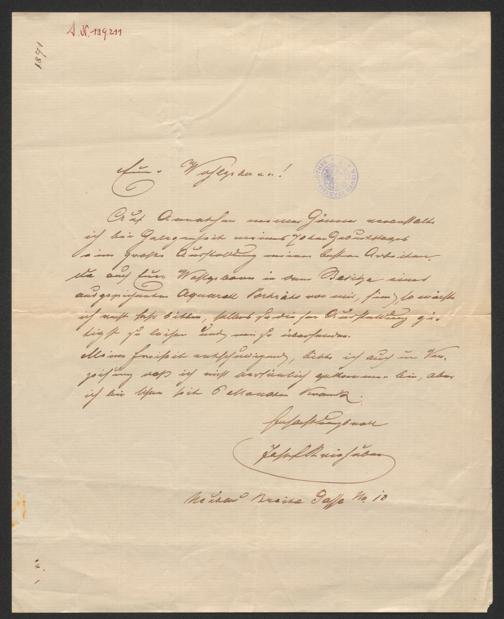 I. N. 189211
1871
Euer Wohlgeboren!
Auf Anrathen meiner Gönner veranstalte
ich bei Gelegenheit meines 70ten Geburtstages
eine große Ausstellung meiner besten Arbeiten.
Da auch Euer Wohlgeboren in dem Besitze eines
ausgezeichneten Aquarell Porträts von mir sind, so möchte
ich recht sehr bitten, selbes zu dieser Ausstellung gü-
tigst zu leihen und mir zu übersenden.
Meine Freiheit entschuldigend, bitte ich auch um Ver-
zeihung daß ich nicht persönlich gekommen bin, aber
ich bin schon seit 6 Monathen krank.
Hochachtungsvoll
Josef Kriehuber
Neubau Breite Gasse No 10